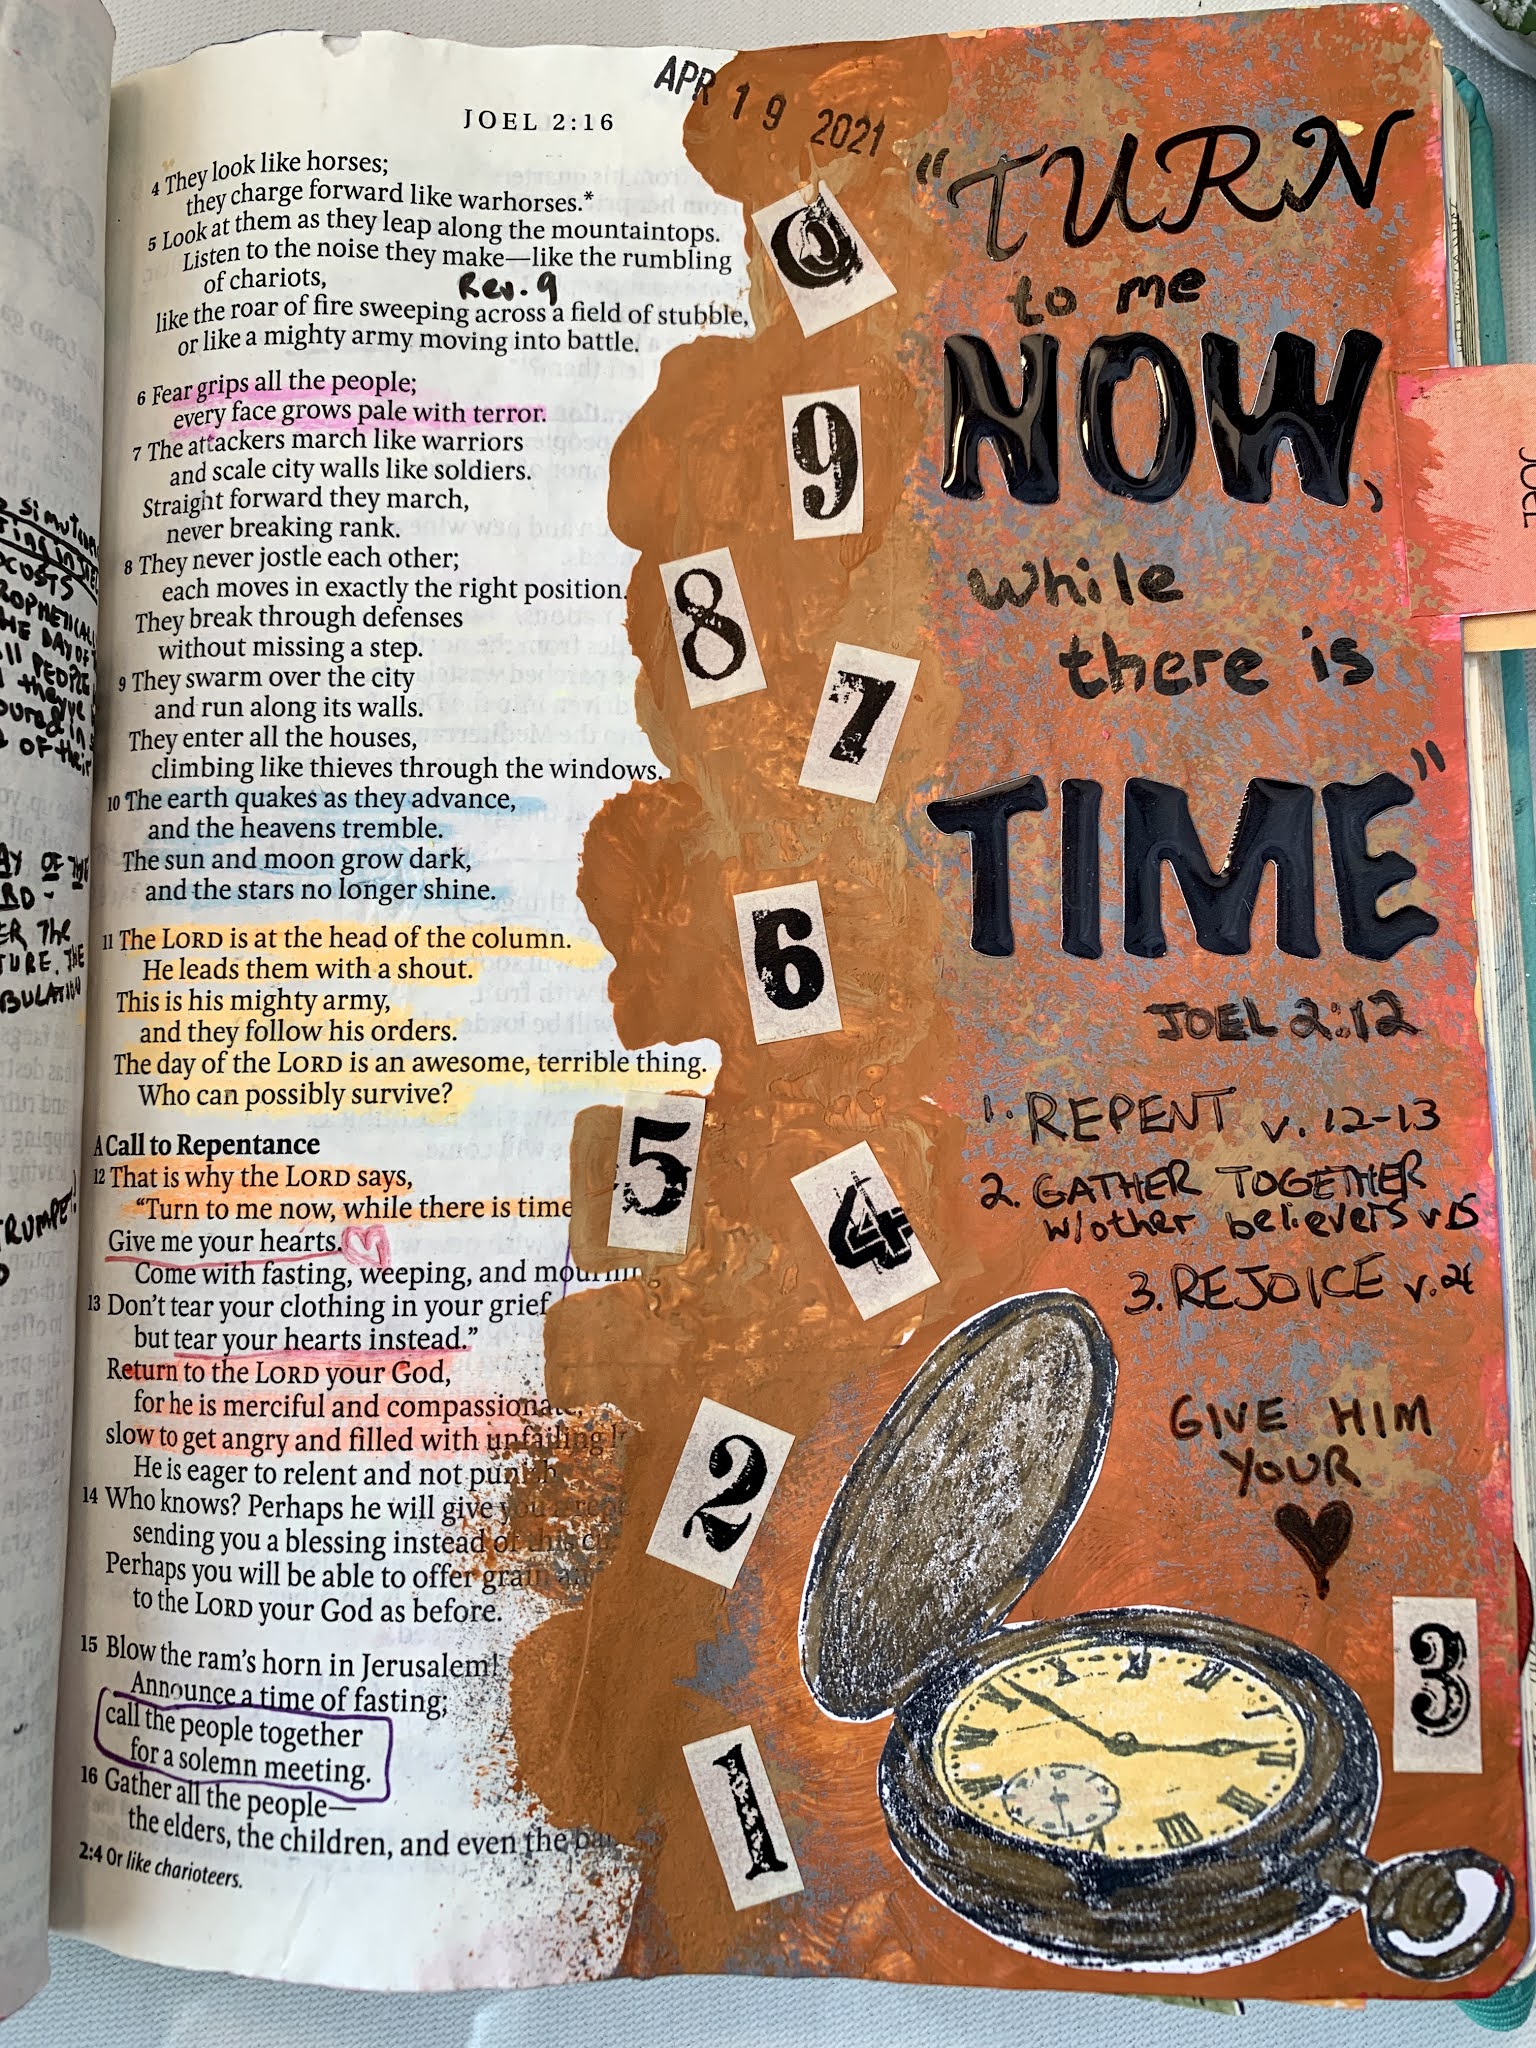 JOEL 2:16
4 They look like horses;
they charge forward like warhorses.*
5 Look at them as they leap along the mountaintops.
Listen to the noise they make—like the rumbling
of chariots,
Rev. 9
like the roar of fire sweeping across a field of stubble,
or like a mighty army moving into battle.
6 Fear grips all the people;
every face grows pale with terror.
7 The attackers march like warriors
and scale city walls like soldiers.
Straight forward they march,
never breaking rank.
8 They never jostle each other;
each moves in exactly the right position.
They break through defenses
without missing a step.
9 They swarm over the city
and run along its walls.
They enter all the houses,
climbing like thieves through the windows.
10 The earth quakes as they advance,
and the heavens tremble.
The sun and moon grow dark,
and the stars no longer shine.
11 The LORD is at the head of the column.
He leads them with a shout.
This is his mighty army,
and they follow his orders.
The day of the LORD is an awesome, terrible thing.
Who can possibly survive?
A Call to Repentance
12 That is why the LORD says,
"Turn to me now, while there is time
Give me your hearts.
Come with fasting, weeping, and mourning
13 Don't tear your clothing in your grief
but tear your hearts instead."
Return to the LORD your God,
for he is merciful and compassionate,
slow to get angry and filled with unfailing
He is eager to relent and not punish
14 Who knows? Perhaps he will give you a
sending you a blessing instead of this
Perhaps you will be able to offer grain
to the LORD your God as before.
15 Blow the ram's horn in Jerusalem!
Announce a time of fasting;
call the people together
for a solemn meeting.
16 Gather all the people—
the elders, the children, and even the
2:4 Or like charioteers.
APR 19 2021
"TURN
to me
NOW,
while
there is
TIME"
JOEL 2:12
1. REPENT v. 12-13
2. GATHER TOGETHER
w/other believers v15
3. REJOICE v.21
GIVE HIM
YOUR
9
8
7
6
5
4
2
3
1
JOEL
LOCUSTS
THE DAY OF
PEOPLE
OF their
DAY OF THE
THE
TRUMPET!